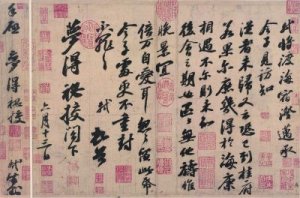 軾將渡海宿澄邁承
令子見訪知
從者未歸又云恐已到桂府
若果爾庶幾得於海康
相遇不爾則未知後
會之期也區區無他禱惟
晚景宜
倍萬自愛耳匆匆留此帋
令子處更不重封
不罪不罪 軾頓首
夢得秘校閣下
六月十三日
手啟 夢得秘校
軾封